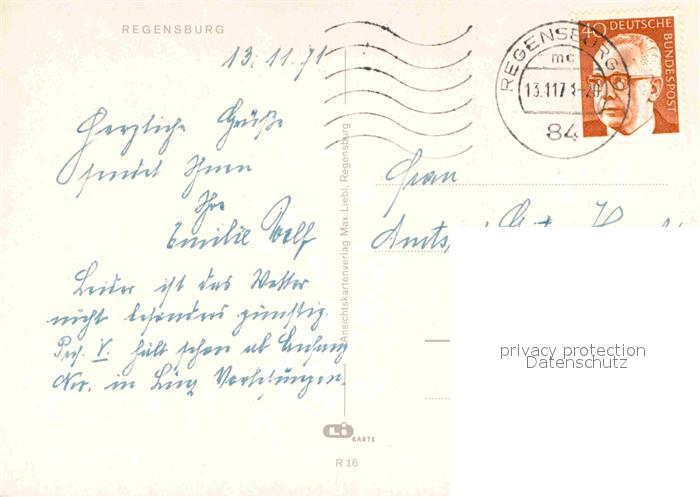 REGENSBURG
13.11.71
Herzliche Grüße
sendet Ihnen
Ihre
Emilie Wolf
Leider ist das Wetter
nicht besonders günstig.
Prof. V. hält schon ab Anfang
Nov. in Linz Vorlesungen.
Ansichtskartenverlag Max Liebl, Regensburg
Li KARTE
R 16
REGENSBURG
mc
13.11.7
84
40 DEUTSCHE BUNDESPOST
Frau
privacy protection
Datenschutz